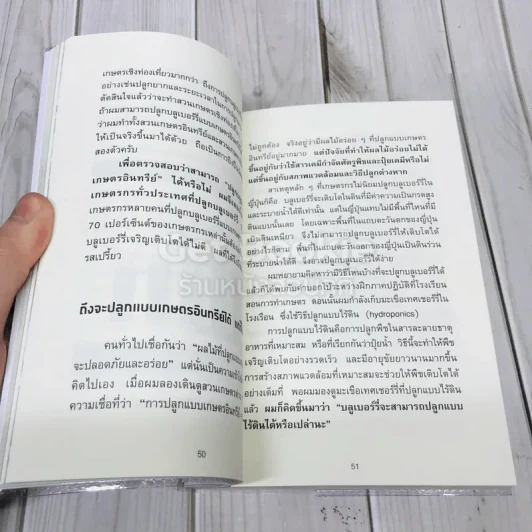 เกษตรเชิงท่องเที่ยวมากกว่า ถึงการปลูกแบบ
อย่างเช่นปลูกยากและระยะเวลาในการ
ตัดสินใจแล้วว่าจะทำสวนเกษตรเชิงท่อง
ถ้าผมสามารถปลูกบลูเบอร์รี่แบบเกษตร
ผมทำทั้งสวนเกษตรอินทรีย์และสวน
ให้เป็นจริงขึ้นมาได้ด้วย ถือเป็นการยิง
สองตัวครับ
เพื่อตรวจสอบว่าสามารถ "ปลูก
เกษตรอินทรีย์" ได้หรือไม่ ผมจึง
เกษตรกรทั่วประเทศที่ปลูกบลูเบอร์รี่
เกษตรกรหลายคนที่ปลูกบลูเบอร์รี่แบบ
70 เปอร์เซ็นต์ของเกษตรกรเหล่านั้น
บลูเบอร์รี่เจริญเติบโตได้ไม่ดี ผลที่ได้
รสเปรี้ยว
ถึงจะปลูกแบบเกษตรอินทรีย์ได้
คนทั่วไปเชื่อกันว่า "ผลไม้ที่ปลูกแบบ
จะปลอดภัยและอร่อย" แต่นั่นเป็นความเชื่อ
คิดไปเอง เมื่อผมลองเดินดูสวนเกษตร
ความเชื่อที่ว่า "การปลูกแบบเกษตรอินทรีย์
50
ไม่ถูกต้อง จริงอยู่ว่ามีผลไม้อร่อย ๆ ที่ปลูกแบบเกษตร
อินทรีย์อยู่มากมาย แต่ปัจจัยที่ทำให้ผลไม้อร่อยไม่ได้
ขึ้นอยู่กับว่าใช้สารเคมีกำจัดศัตรูพืชและปุ๋ยเคมีหรือไม่
แต่ขึ้นอยู่กับสภาพแวดล้อมและวิธีปลูกต่างหาก
สาเหตุหลัก ๆ ที่เกษตรกรไม่นิยมปลูกบลูเบอร์รี่ใน
ญี่ปุ่นก็คือ บลูเบอร์รี่จะเติบโตในดินที่มีค่าความเป็นกรดสูง
และระบายน้ำได้ดีเท่านั้น แต่ในญี่ปุ่นแทบไม่มีพื้นที่ไหนที่มี
ดินแบบนั้นเลย โดยเฉพาะพื้นที่ในแถบตะวันตกของญี่ปุ่น
เป็นดินเหนียว จึงไม่สามารถปลูกบลูเบอร์รี่ให้เติบโตได้
อย่างไรก็ตาม พื้นที่ในแถบตะวันออกของญี่ปุ่นเป็นดินร่วน
ที่ระบายน้ำได้ดี จึงอาจปลูกบลูเบอร์รี่ได้ง่าย
ผมพยายามคิดหาว่ามีวิธีไหนบ้างที่จะปลูกบลูเบอร์รี่ได้
แล้วก็ได้พบกับคำบอกใบ้ระหว่างฝึกภาคปฏิบัติที่โรงเรียน
สอนการทำเกษตร ตอนนั้นผมกำลังเก็บมะเขือเทศเชอร์รี่ใน
โรงเรือน ซึ่งใช้วิธีปลูกแบบไร้ดิน (hydroponics)
การปลูกแบบไร้ดินคือการปลูกพืชในสารละลายธาตุ
อาหารที่เหมาะสม หรือที่เรียกกันว่าปุ๋ยน้ำ วิธีนี้จะทำให้พืช
เจริญเติบโตอย่างรวดเร็ว และมีอายุขัยยาวนานมากขึ้น
การสร้างสภาพแวดล้อมที่เหมาะสมจะช่วยให้พืชเติบโตได้
อย่างเต็มที่ พอผมมองดูมะเขือเทศเชอร์รี่ที่ปลูกแบบไร้ดิน
แล้ว ผมก็คิดขึ้นมาว่า "บลูเบอร์รี่จะสามารถปลูกแบบ
ไร้ดินได้หรือเปล่านะ"
51